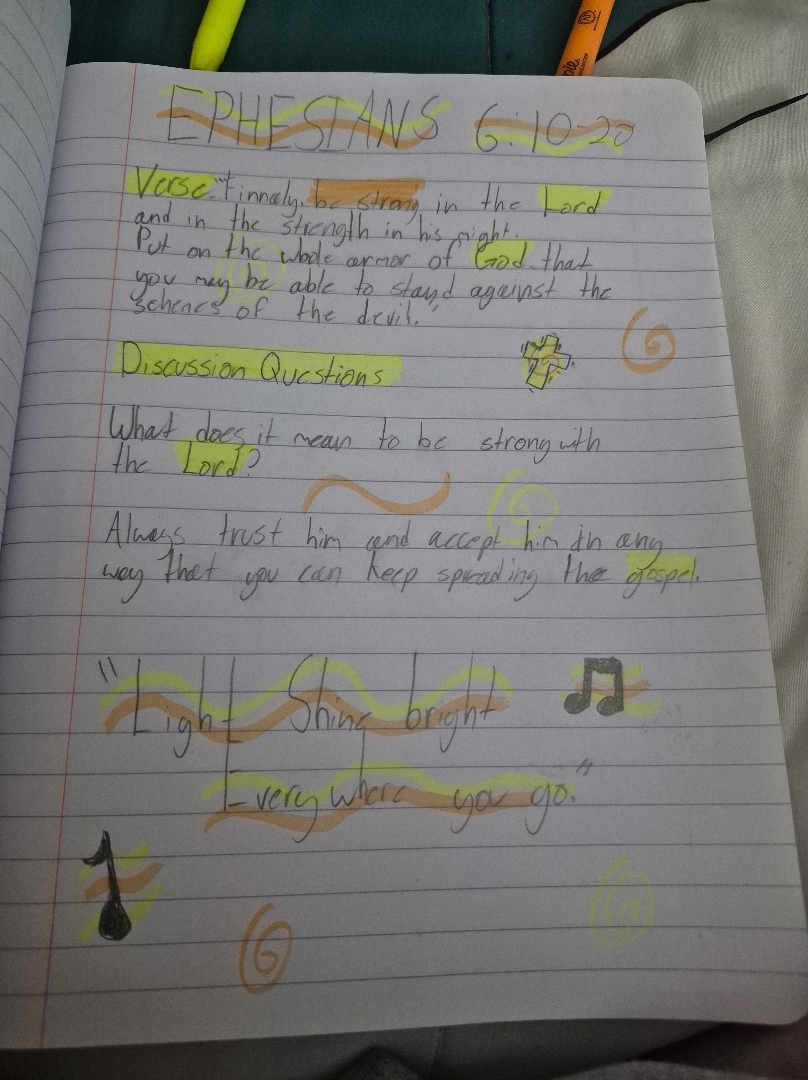 EPHESIANS 6:10-20
Verse: "Finnaly, be strong in the Lord
and in the strength in his might.
Put on the whole armor of God that
you may be able to stand against the
schemes of the devil."
Discussion Questions
What does it mean to be strong with
the Lord?
Always trust him and accept him in any
way that you can keep spreading the gospel.
"Light Shine bright
Everywhere you go."